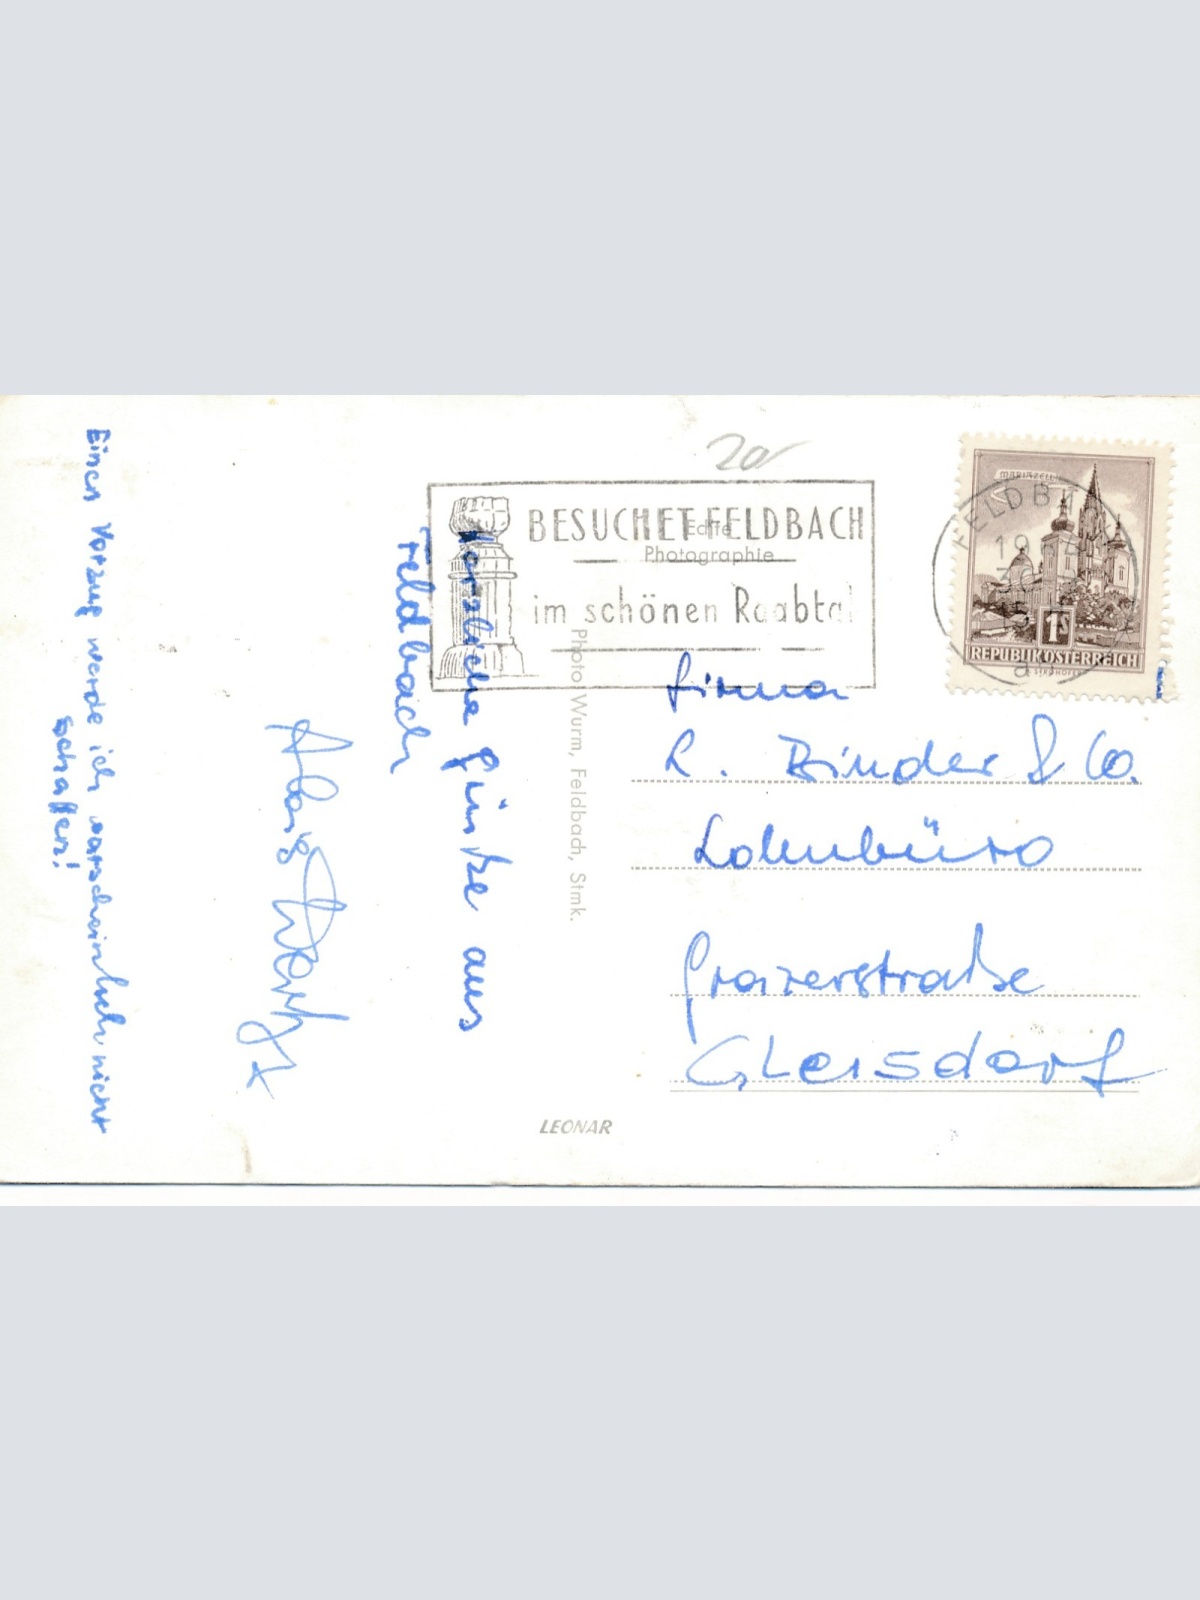 20
BESUCHET FELDBACH
im schönen Raabtal
Echte
Photographie
MARIAZELL
FELDB
19
30
1S
REPUBLIK ÖSTERREICH
a
Herzliche Grüße aus
Feldbach
Alois
Einen Vorzug werde ich warscheinlich nicht
schaffen!
Photo Wurm, Feldbach, Stmk.
Firma
R. Binder & Co.
Lohnbüro
Grazerstraße
Gleisdorf
LEONAR